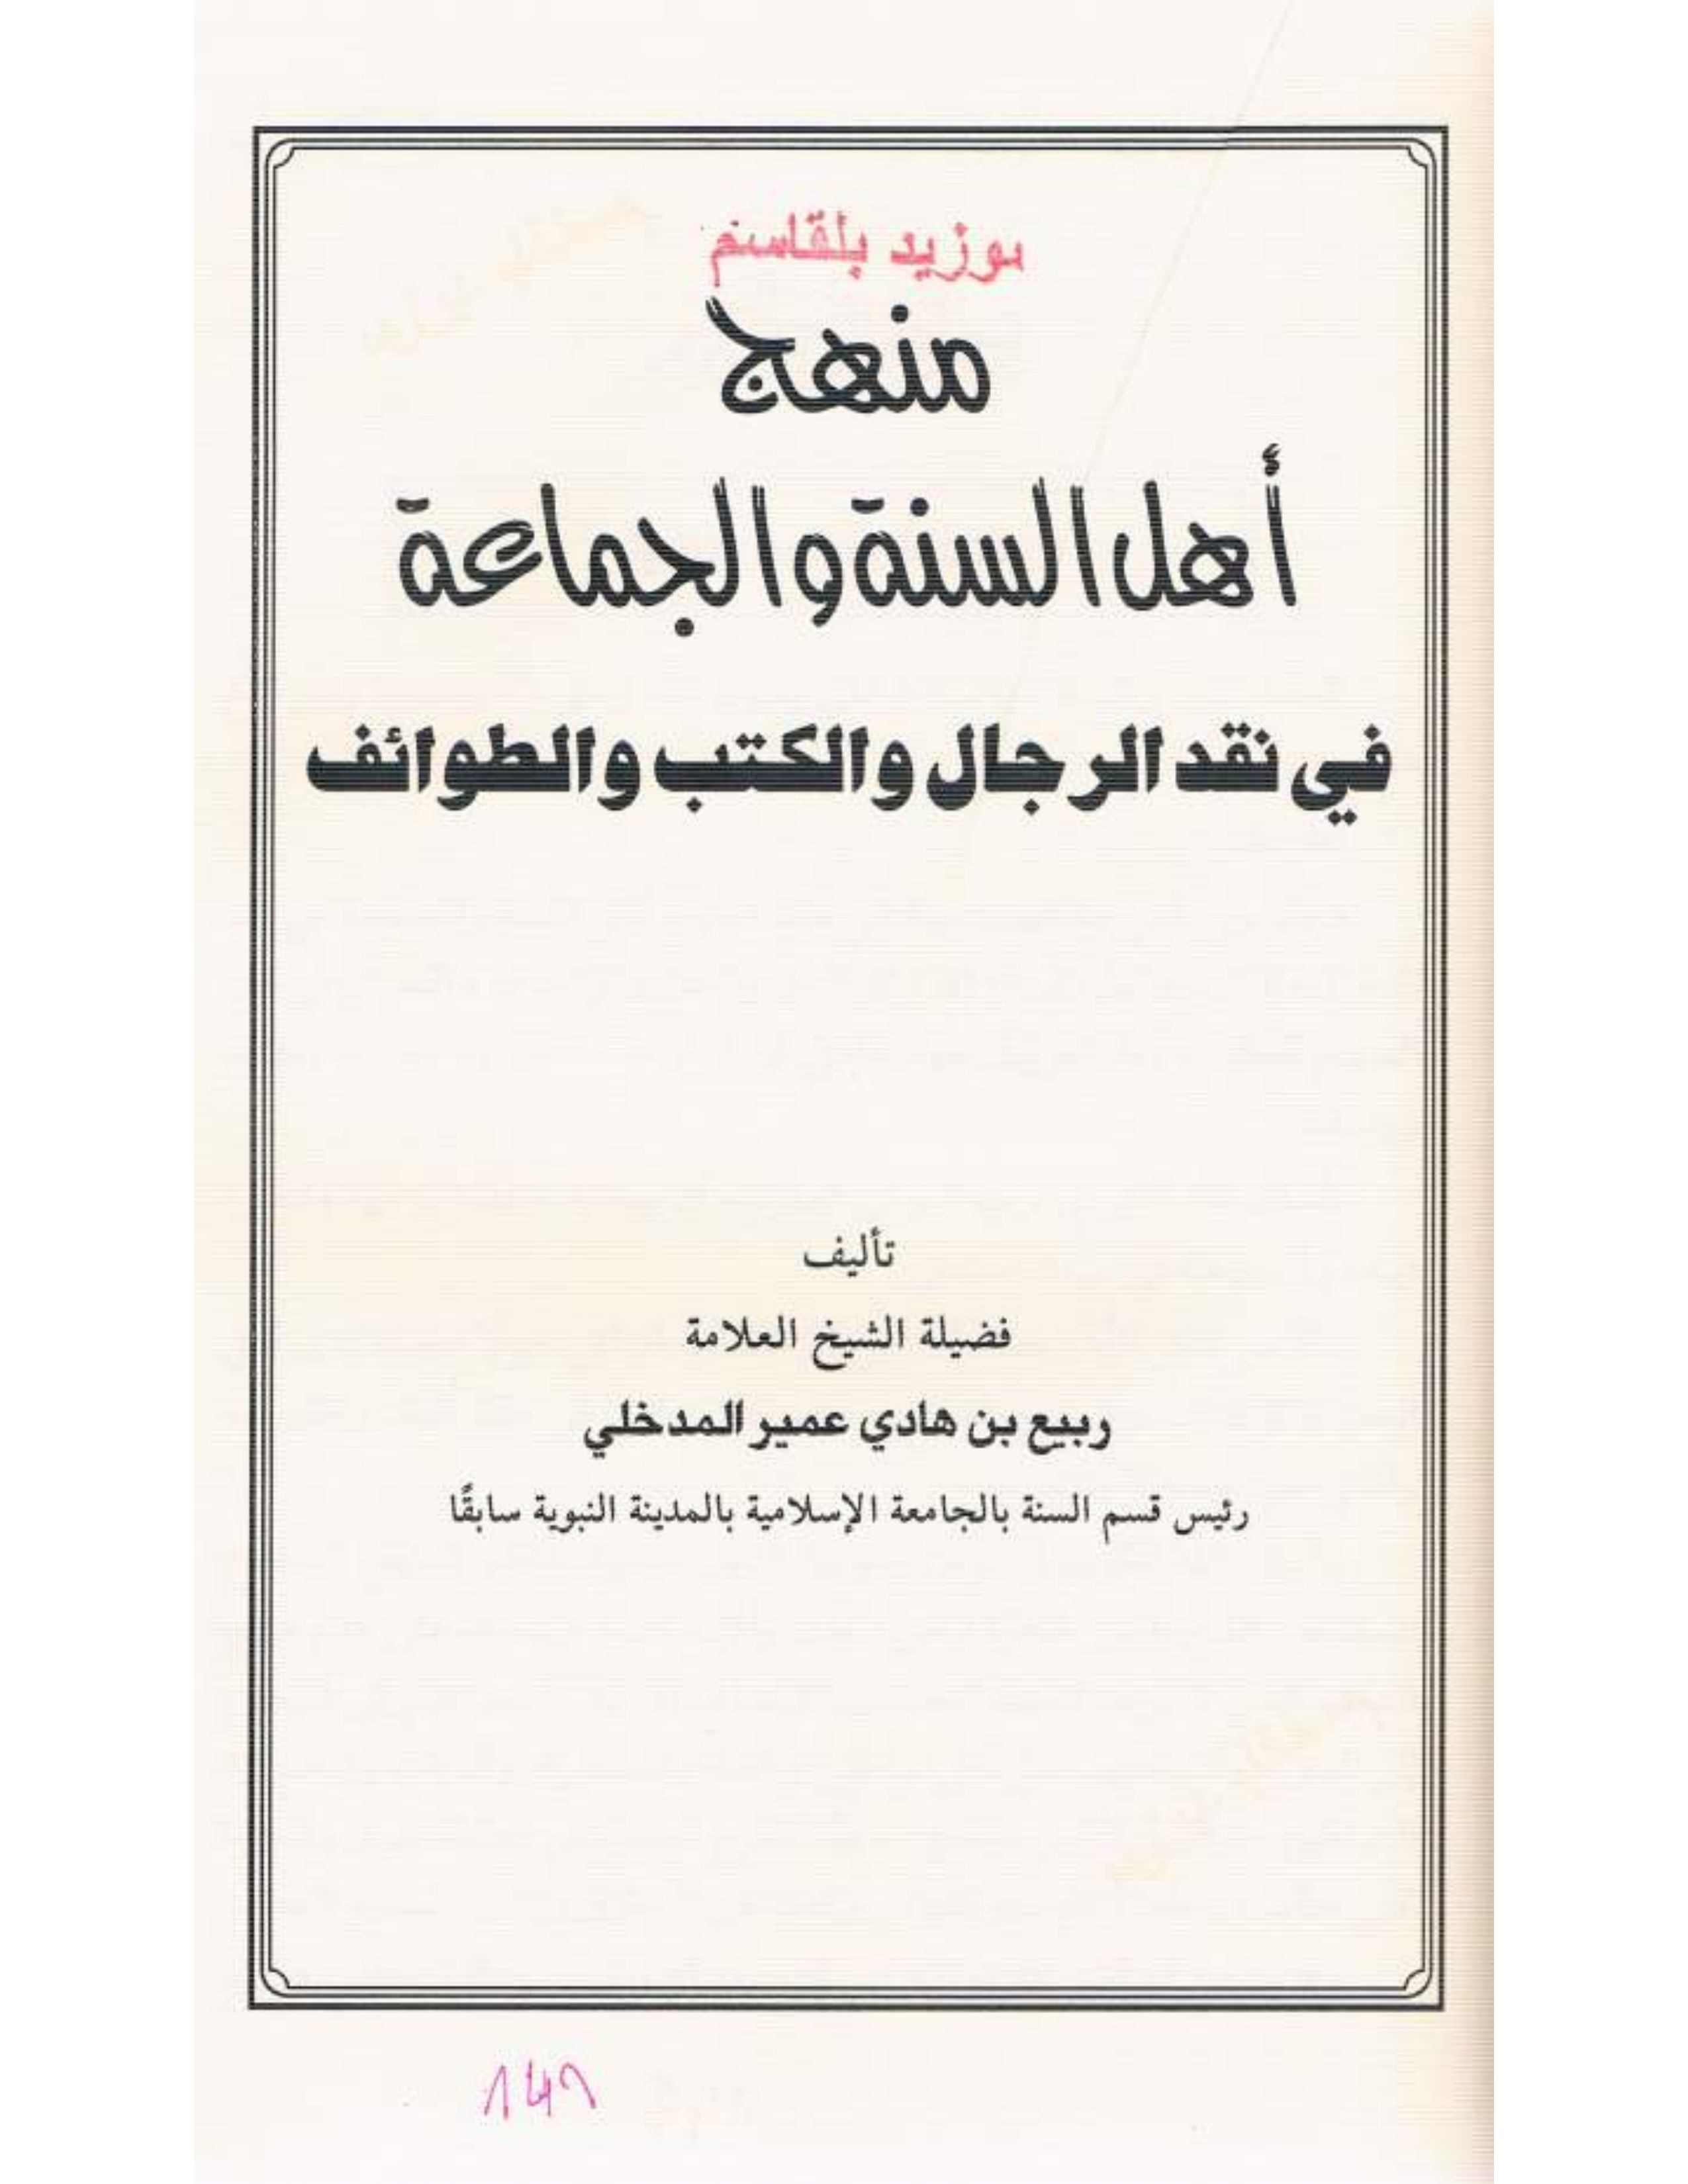 بوزيد بلقاسم
منهج
أهل السنة والجماعة
في نقد الرجال والكتب والطوائف
تأليف
فضيلة الشيخ العلامة
ربيع بن هادي عمير المدخلي
رئيس قسم السنة بالجامعة الإسلامية بالمدينة النبوية سابقًا